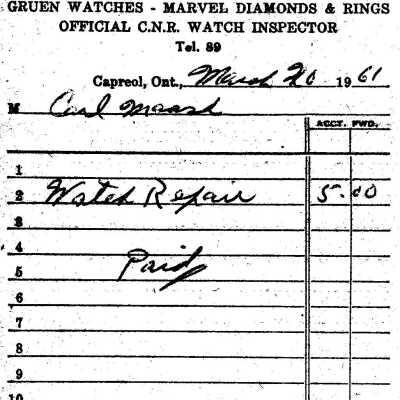 GRUEN WATCHES - MARVEL DIAMONDS & RINGS
OFFICIAL C.N.R. WATCH INSPECTOR
Tel. 89
Capreol, Ont., March 20 1961
M Carl Maash
ACCT. FWD.
1
2 Watch Repair 5.00
3
4
5 Paid
6
7
8
9
10